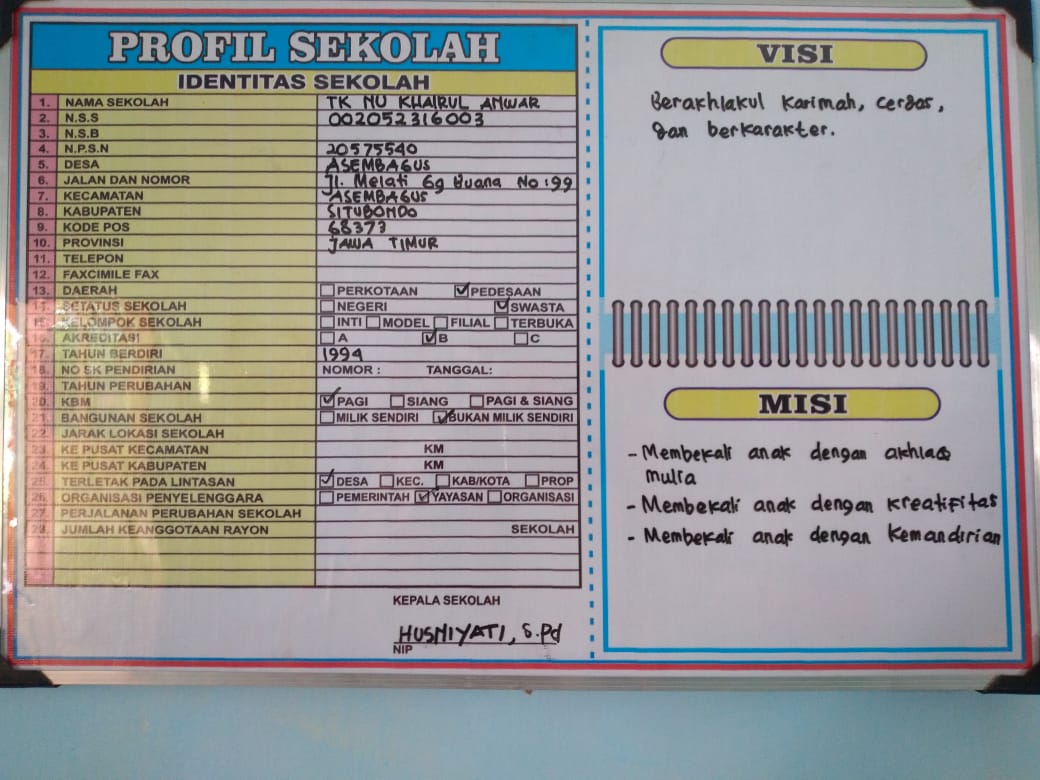 PROFIL SEKOLAH
IDENTITAS SEKOLAH
1. NAMA SEKOLAH TK NU KHAIRUL ANWAR
2. N.S.S 002052316003
3. N.S.B
4. N.P.S.N 20575540
5. DESA ASEMBAGUS
6. JALAN DAN NOMOR Jl. Melati Gg Buana No : 99
7. KECAMATAN ASEMBAGUS
8. KABUPATEN SITUBONDO
9. KODE POS 68373
10. PROVINSI JAWA TIMUR
11. TELEPON
12. FAXCIMILE FAX
13. DAERAH PERKOTAAN ✓ PEDESAAN
14. SETATUS SEKOLAH NEGERI ✓ SWASTA
15. KELOMPOK SEKOLAH INTI MODEL FILIAL TERBUKA
16. AKREDITASI A ✓ B C
17. TAHUN BERDIRI 1994
18. NO SK PENDIRIAN NOMOR : TANGGAL:
19. TAHUN PERUBAHAN
20. KBM ✓ PAGI SIANG PAGI & SIANG
21. BANGUNAN SEKOLAH MILIK SENDIRI ✓ BUKAN MILIK SENDIRI
22. JARAK LOKASI SEKOLAH
23. KE PUSAT KECAMATAN KM
24. KE PUSAT KABUPATEN KM
25. TERLETAK PADA LINTASAN ✓ DESA KEC. KAB/KOTA PROP
26. ORGANISASI PENYELENGGARA PEMERINTAH ✓ YAYASAN ORGANISASI
27. PERJALANAN PERUBAHAN SEKOLAH
28. JUMLAH KEANGGOTAAN RAYON SEKOLAH
KEPALA SEKOLAH
HUSNIYATI, S.Pd
NIP
VISI
Berakhlakul Karimah, cerdas,
dan berkarakter.
MISI
- Membekali anak dengan akhlaq
mulia
- Membekali anak dengan kreatifitas
- Membekali anak dengan kemandirian